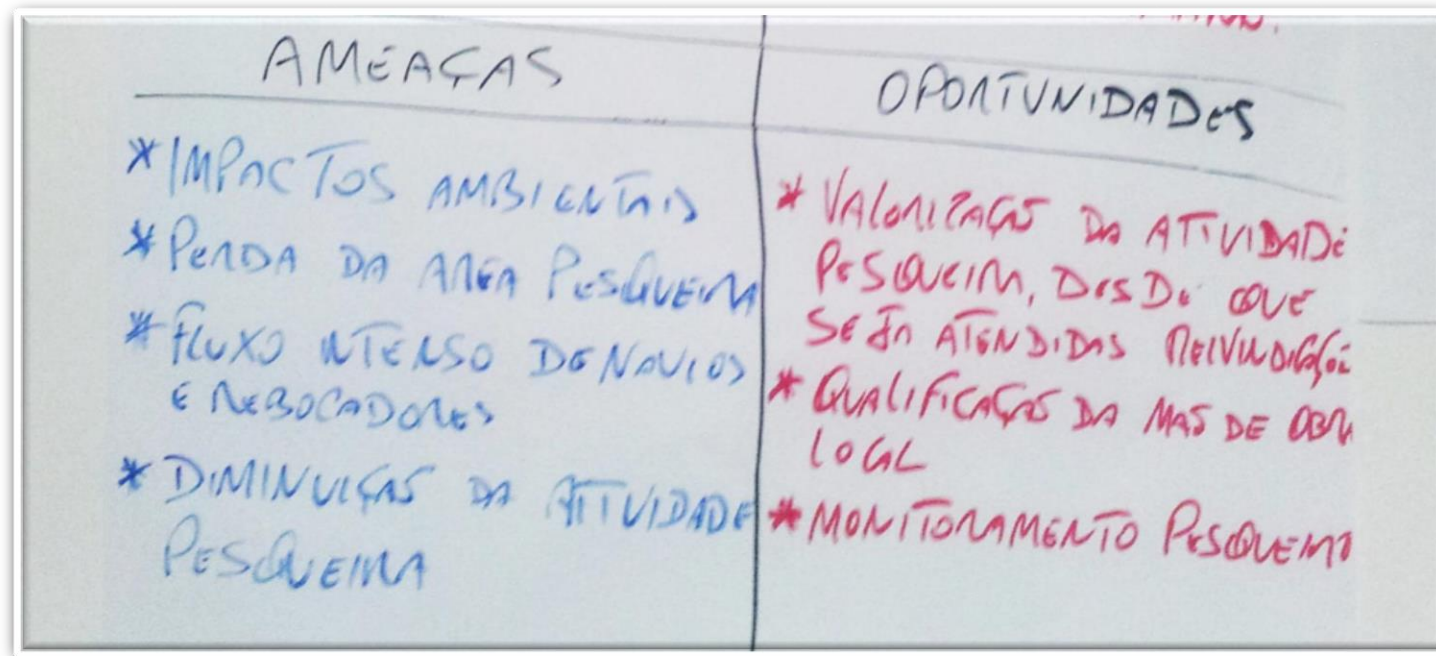 AMEAÇAS
* IMPACTOS AMBIENTAIS
* PERDA DA AREA PESQUEIRA
* FLUXO INTENSO DE NAVIOS
E REBOCADORES
* DIMINUIÇÃO DA ATIVIDADE
PESQUEIRA
OPORTUNIDADES
* VALORIZAÇÃO DA ATIVIDADE
PESQUEIRA, DESDE QUE
SEJA ATENDIDAS REIVINDICAÇÕE
* QUALIFICAÇÃO DA MÃO DE OBRA
LOCAL
* MONITORAMENTO PESQUEIRO